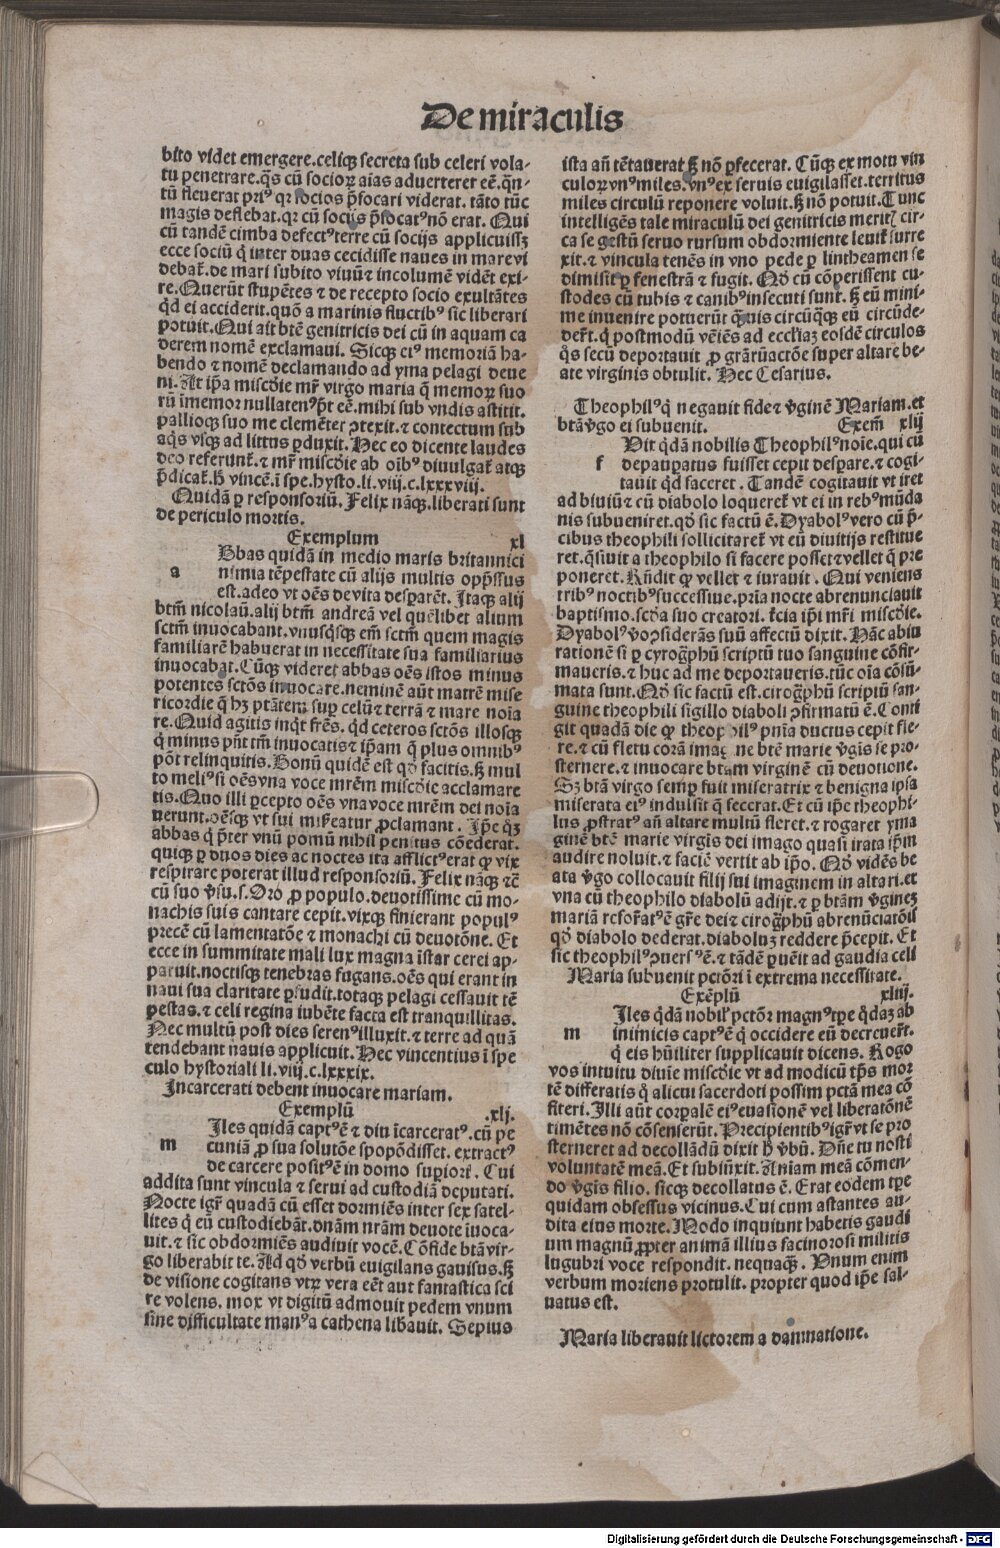 De miraculis
bito videt emergere.celiqꝫ secreta sub celeri vola-
tu penetrare.q̄s cū socioꝝ aīas aduerteret eē.q̄n-
tū fleuerat priꝰ qꝛ socios p̄focari viderat. tāto tūc
magis deflebat.qꝛ cū socijs p̄focatꝰnō erat. Qui
cū tandē cimba defectꝰterre cū socijs applicuissꝫ
ecce sociū q̄ inter duas cecidisse naues in mare vi
debat̄.de mari subito viuū ⁊ incolumē vidēt exi-
re.Querūt stupētes ⁊ de recepto socio exultātes
qd̄ ei acciderit.quō a marinis fluctibꝰ sic liberari
potuit.Qui ait btē genitricis dei cū in aquam ca
derem nomē exclamaui. Sicqꝫ eiꝰ memoriā ha-
bendo ⁊ nomē declamando ad yma pelagi deue
ni.At ip̄a miscd̄ie mr̄ virgo maria q̄ memoꝝ suo
rū īmemor nullatenꝰpt̄ eē.mihi sub vndis astitit.
pallioqꝫ suo me clemēter ꝓtexit.⁊ contectum sub
aq̄s vsqꝫ ad littus ꝑduxit.Hec eo dicente laudes
deo referunt̄.⁊ mr̄ miscd̄ie ab oībꝰ diuulgat̄ atqꝫ
p̄dicat̄.H̄ vincē.ī spe.hysto.li.viij.c.lxxxviij.
Quidā ꝑ responsoriū. Felix nāqꝫ.liberati sunt
de periculo mortis.
Exemplum xl
Bbas quidā in medio maris britannici
a nimia tēpestate cū alijs multis opp̄ssus
est.adeo vt oēs de vita desꝑarēt. Itaqꝫ alij
btm̄ nicolaū.alij btm̄ andreā vel quēlibet alium
sctm̄ inuocabant.vnusq̄sqꝫ em̄ sctm̄ quem magis
familiarē habuerat in necessitate sua familiarius
inuocabat.Cūqꝫ videret abbas oēs istos minus
potentes sctōs inuocare.neminē aūt matrē mise
ricordie q̄ hꝫ ptātem suꝑ celū⁊ terrā ⁊ mare noīa
re.Quid agitis inqt̄ frēs. qd̄ ceteros sctōs illosqꝫ
q̄ minus pn̄t tm̄ inuocatis⁊ ip̄am q̄ plus omnibꝰ
pōt relinquitis.Bonū quidē est qd̄ facitis.sꝫ mul
to meliꝰsi oēsvna voce mrēm miscd̄ie acclamare
tis.Quo illi ꝑcepto oēs vna voce mrēm dei noīa
uerunt.oēsqꝫ vt sui mis̄eatur ꝓclamant. Ip̄e qꝫ
abbas q̄ p̄ter vnū pomū nihil penitus cōederat.
quiqꝫ ꝑ duos dies ac noctes ita afflictꝰerat qꝙ vix
respirare poterat illud responsoriū. Felix nāqꝫ ⁊c̄
cū suo v̄su.s.Oro ꝓ populo.deuotissime cū mo-
nachis suis cantare cepit.vixqꝫ finierant populꝰ
precē cū lamentatōe ⁊ monachi cū deuotōne. Et
ecce in summitate mali lux magna īstar cerei ap-
paruit.noctisqꝫ tenebras fugans.oēs qui erant in
naui sua claritate ꝑfudit.totaqꝫ pelagi cessauit tē
pestas.⁊ celi regina iubēte facta est tranquillitas.
Nec multū post dies serenꝰilluxit.⁊ terre ad quā
tendebant nauis applicuit. Hec vincentius ī spe
culo hystoriali li.viij.c.lxxxix.
Incarcerati debent inuocare mariam.
Exemplū .xlj.
Iles quidā captꝰē ⁊ diu īcarceratꝰ.cū pe
m cuniā ꝓ sua solutōe spopōdisset. extractꝰ
de carcere positꝰē in domo suꝑiori. Cui
addita sunt vincula ⁊ serui ad custodiā deputati.
Nocte igr̄ quadā cū esset dormiēs inter sex satel-
lites q̄ eū custodiebāt.dnām nrām deuote īuoca-
uit.⁊ sic obdormiēs audiuit vocē. Cōfide btā vir-
go liberabit te. Ad qd̄ verbū euigilans gauisus.sꝫ
de visione cogitans vtꝝ vera eēt aut fantastica sci
re volens. mox vt digitū admouit pedem vnum
sine difficultate manꝰa cathena lib̄auit. Sepius
ista an̄ tētauerat sꝫ nō ꝑfecerat. Cūqꝫ ex motu vin
culoꝝ vnꝰmiles.vnꝰex seruis euigilasset.territus
miles circulū reponere voluit.sꝫ nō potuit.Tunc
intelligēs tale miraculū dei genitricis merit cir-
ca se gestū seruo rursum obdormiente leuit̄ surre
xit.⁊ vincula tenēs in vno pede ꝑ lintheamen se
dimisit ꝑ fenestrā ⁊ fugit. Qd̄ cū cōperissent cu-
stodes cū tubis ⁊ canibꝰinsecuti sunt. sꝫ eū mini-
me inuenire potuerūt q̄uis circūqꝫ eū circūde-
der̄t.q̄ postmodū vēiēs ad eccl̄iaꝫ eosdē circulos
q̄s secū deportauit ꝓ grāꝝactōe super altare be-
ate virginis obtulit. Hec Cesarius.
Theophilꝰq̄ negauit fide⁊ v̄ginē Mariam.et
btāv̄go ei subuenit. Exem̄ xlij
Vit qd̄ā nobilis Theophilꝰnoīe.qui cū
f depauꝑatus fuisset cepit desꝑare.⁊ cogi-
tauit qd̄ faceret. Tandē cogitauit vt iret
ad biuiū ⁊ cū diabolo loqueret̄ vt ei in rebꝰmūda
nis subueniret.qd̄ sic factū ē.Dyabolꝰvero cū p̄-
cibus theophili sollicitaret̄ vt eū diuitijs restitue
ret.q̄siuit a theophilo si facere posset⁊vellet q̄ pre
poneret. Rn̄dit qꝙ vellet ⁊ iurauit. Qui veniens
tribꝰ noctibꝰsuccessiue.prīa nocte abrenunciauit
baptismo.scd̄a suo creatori. t̄cia ip̄i mr̄i miscd̄ie.
Dyabolꝰv̄o ꝯsiderās suū affectū dixit. Hāc abiu
rationē si ꝑ cyrog̃phū scriptū tuo sanguine cōfir-
maueris.⁊ huc ad me deportaueris.tūc oīa cōsū-
mata sunt.Qd̄ sic factū est.cirog̃phū scriptū san-
guine theophili sigillo diaboli ꝯfirmatū ē.Conti
git quadā die qꝙ theophilꝰ pn̄ia ductus cepit fle-
re.⁊ cū fletu corā imagine btē marie v̄gīs se pro-
sternere.⁊ inuocare btam virginē cū deuotione.
Sꝫ btā virgo semꝑ fuit miseratrix ⁊ benigna ipsa
miserata eiꝰ indulsit q̄ fecerat.Et cū ip̄e theophi-
lus ꝓstratꝰ an̄ altare multū fleret.⁊ rogaret yma
ginē btē marie virgīs dei imago quasi irata ip̄m
audire noluit.⁊ faciē vertit ab ip̄o. Qd̄ vidēs be
ata v̄go collocauit filij sui imaginem in altari.et
vna cū theophilo diabolū adijt.⁊ ꝑ btām v̄gineꝫ
mariā reformatꝰē gr̄e dei⁊ cirog̃phū abrenūciatōis
qd̄ diabolo dederat.diaboluꝫ reddere p̄cepit. Et
sic theophilꝰꝯuersꝰē.⁊ tādē ꝑuēit ad gaudia celi
Maria subuenit pctōri ī extrema necessitate.
Exēplū xliij.
Iles qd̄ā nobil̄ pctōr magnꝰtpe qd̄aꝫ ab
m inimicis captꝰē q̄ occidere eū decreuer̄t.
q̄ eis hūiliter supplicauit dicens. Rogo
vos intuitu diuīe miscd̄ie vt ad modicū tp̄s mor
tē differatis q̄ alicui sacerdoti possim pctā mea cō
fiteri. Illi aūt corꝑalē eiꝰeuasionē vel liberatōnē
timētes nō cōsenserūt. Precipientibꝰigr̄ vt se pro
sterneret ad decollādū dixit h̄ v̄bū. Dn̄e tu nosti
voluntatē meā.Et subiūxit.Aniam meā cōmen-
do v̄gīs filio. sicqꝫ decollatus ē. Erat eodem tpe
quidam obsessus vicinus.Cui cum astantes au-
dita eius morte. Modo inquiunt habetis gaudi
um magnū ꝓpter animā illius facinorosi militis
lugubri voce respondit. nequaqꝫ. Vnum enim
verbum moriens protulit. propter quod ip̄e sal-
uatus est.
Maria liberauit lictorem a damnatione.
Digitalisierung gefördert durch die Deutsche Forschungsgemeinschaft - DFG